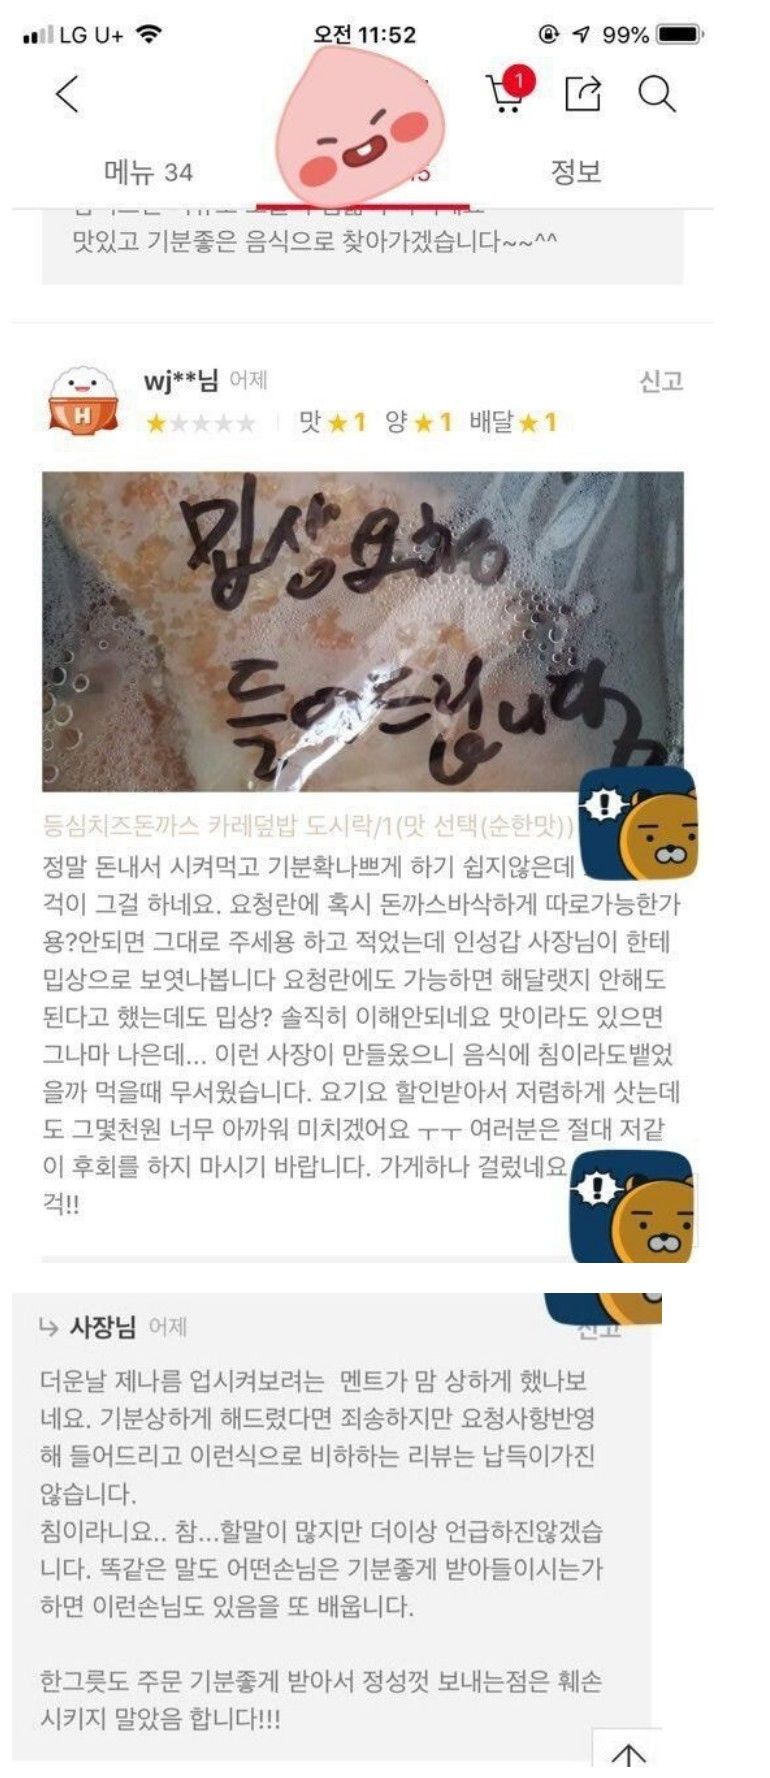 LG U+ 오전 11:52 99%
1
메뉴 34 정보
맛있고 기분좋은 음식으로 찾아가겠습니다~~^^
wj**님 어제 신고
맛 ★1 양 ★1 배달 ★1
H
밉상요청
들어드립니다
등심치즈돈까스 카레덮밥 도시락/1(맛 선택(순한맛))
정말 돈내서 시켜먹고 기분확나쁘게 하기 쉽지않은데
걱이 그걸 하네요. 요청란에 혹시 돈까스바삭하게 따로가능한가
용?안되면 그대로 주세용 하고 적었는데 인성갑 사장님이 한테
밉상으로 보엿나봅니다 요청란에도 가능하면 해달랫지 안해도
된다고 했는데도 밉상? 솔직히 이해안되네요 맛이라도 있으면
그나마 나은데... 이런 사장이 만들옸으니 음식에 침이라도뱉었
을까 먹을때 무서웠습니다. 요기요 할인받아서 저렴하게 삿는데
도 그몇천원 너무 아까워 미치겠어요 ㅜㅜ 여러분은 절대 저같
이 후회를 하지 마시기 바랍니다. 가게하나 걸렀네요
걱!!
↳ 사장님 어제 신고
더운날 제나름 업시켜보려는 멘트가 맘 상하게 했나보
네요. 기분상하게 해드렸다면 죄송하지만 요청사항반영
해 들어드리고 이런식으로 비하하는 리뷰는 납득이가진
않습니다.
침이라니요.. 참...할말이 많지만 더이상 언급하진않겠습
니다. 똑같은 말도 어떤손님은 기분좋게 받아들이시는가
하면 이런손님도 있음을 또 배웁니다.
한그릇도 주문 기분좋게 받아서 정성껏 보내는점은 훼손
시키지 말았음 합니다!!!